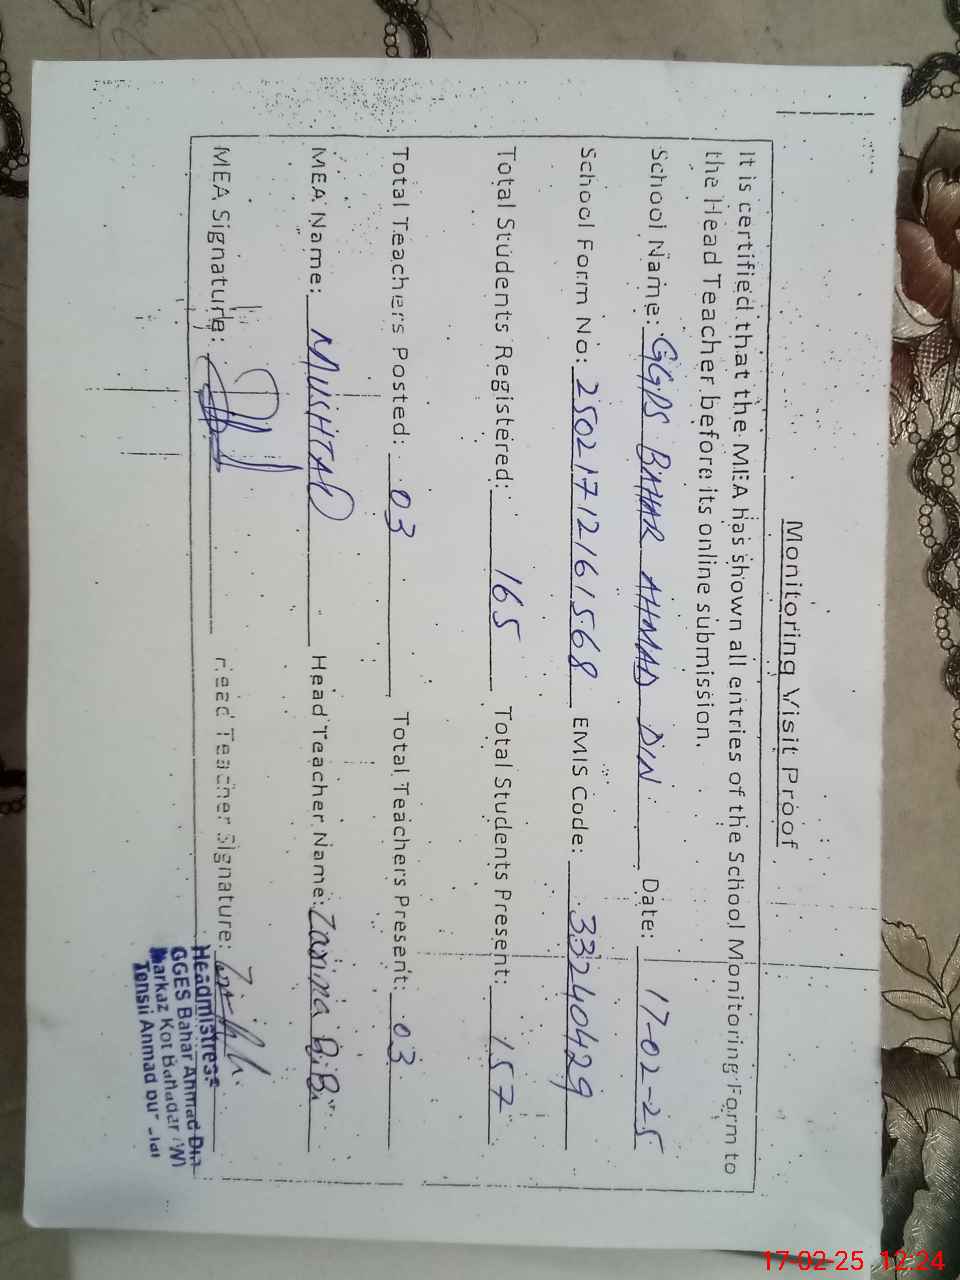 Monitoring Visit Proof
It is certified that the MEA has shown all entries of the School Monitoring Form to
the Head Teacher before its online submission.
School Name: GGPS BAHAR AHMAD DIN Date: 17-02-25
School Form No: 2502171216 1568 EMIS Code: 33240429
Total Students Registered: 165 Total Students Present: 157
Total Teachers Posted: 03 Total Teachers Present: 03
MEA Name: MUSHTAQ Head Teacher Name: Zarina BiBi
MEA Signature: Head Teacher Signature:
Headmistress
GGES Bahar Ahmad Din
Markaz Kot Bahadar (W)
Tehsil Ahmad
17-02-25 12:24